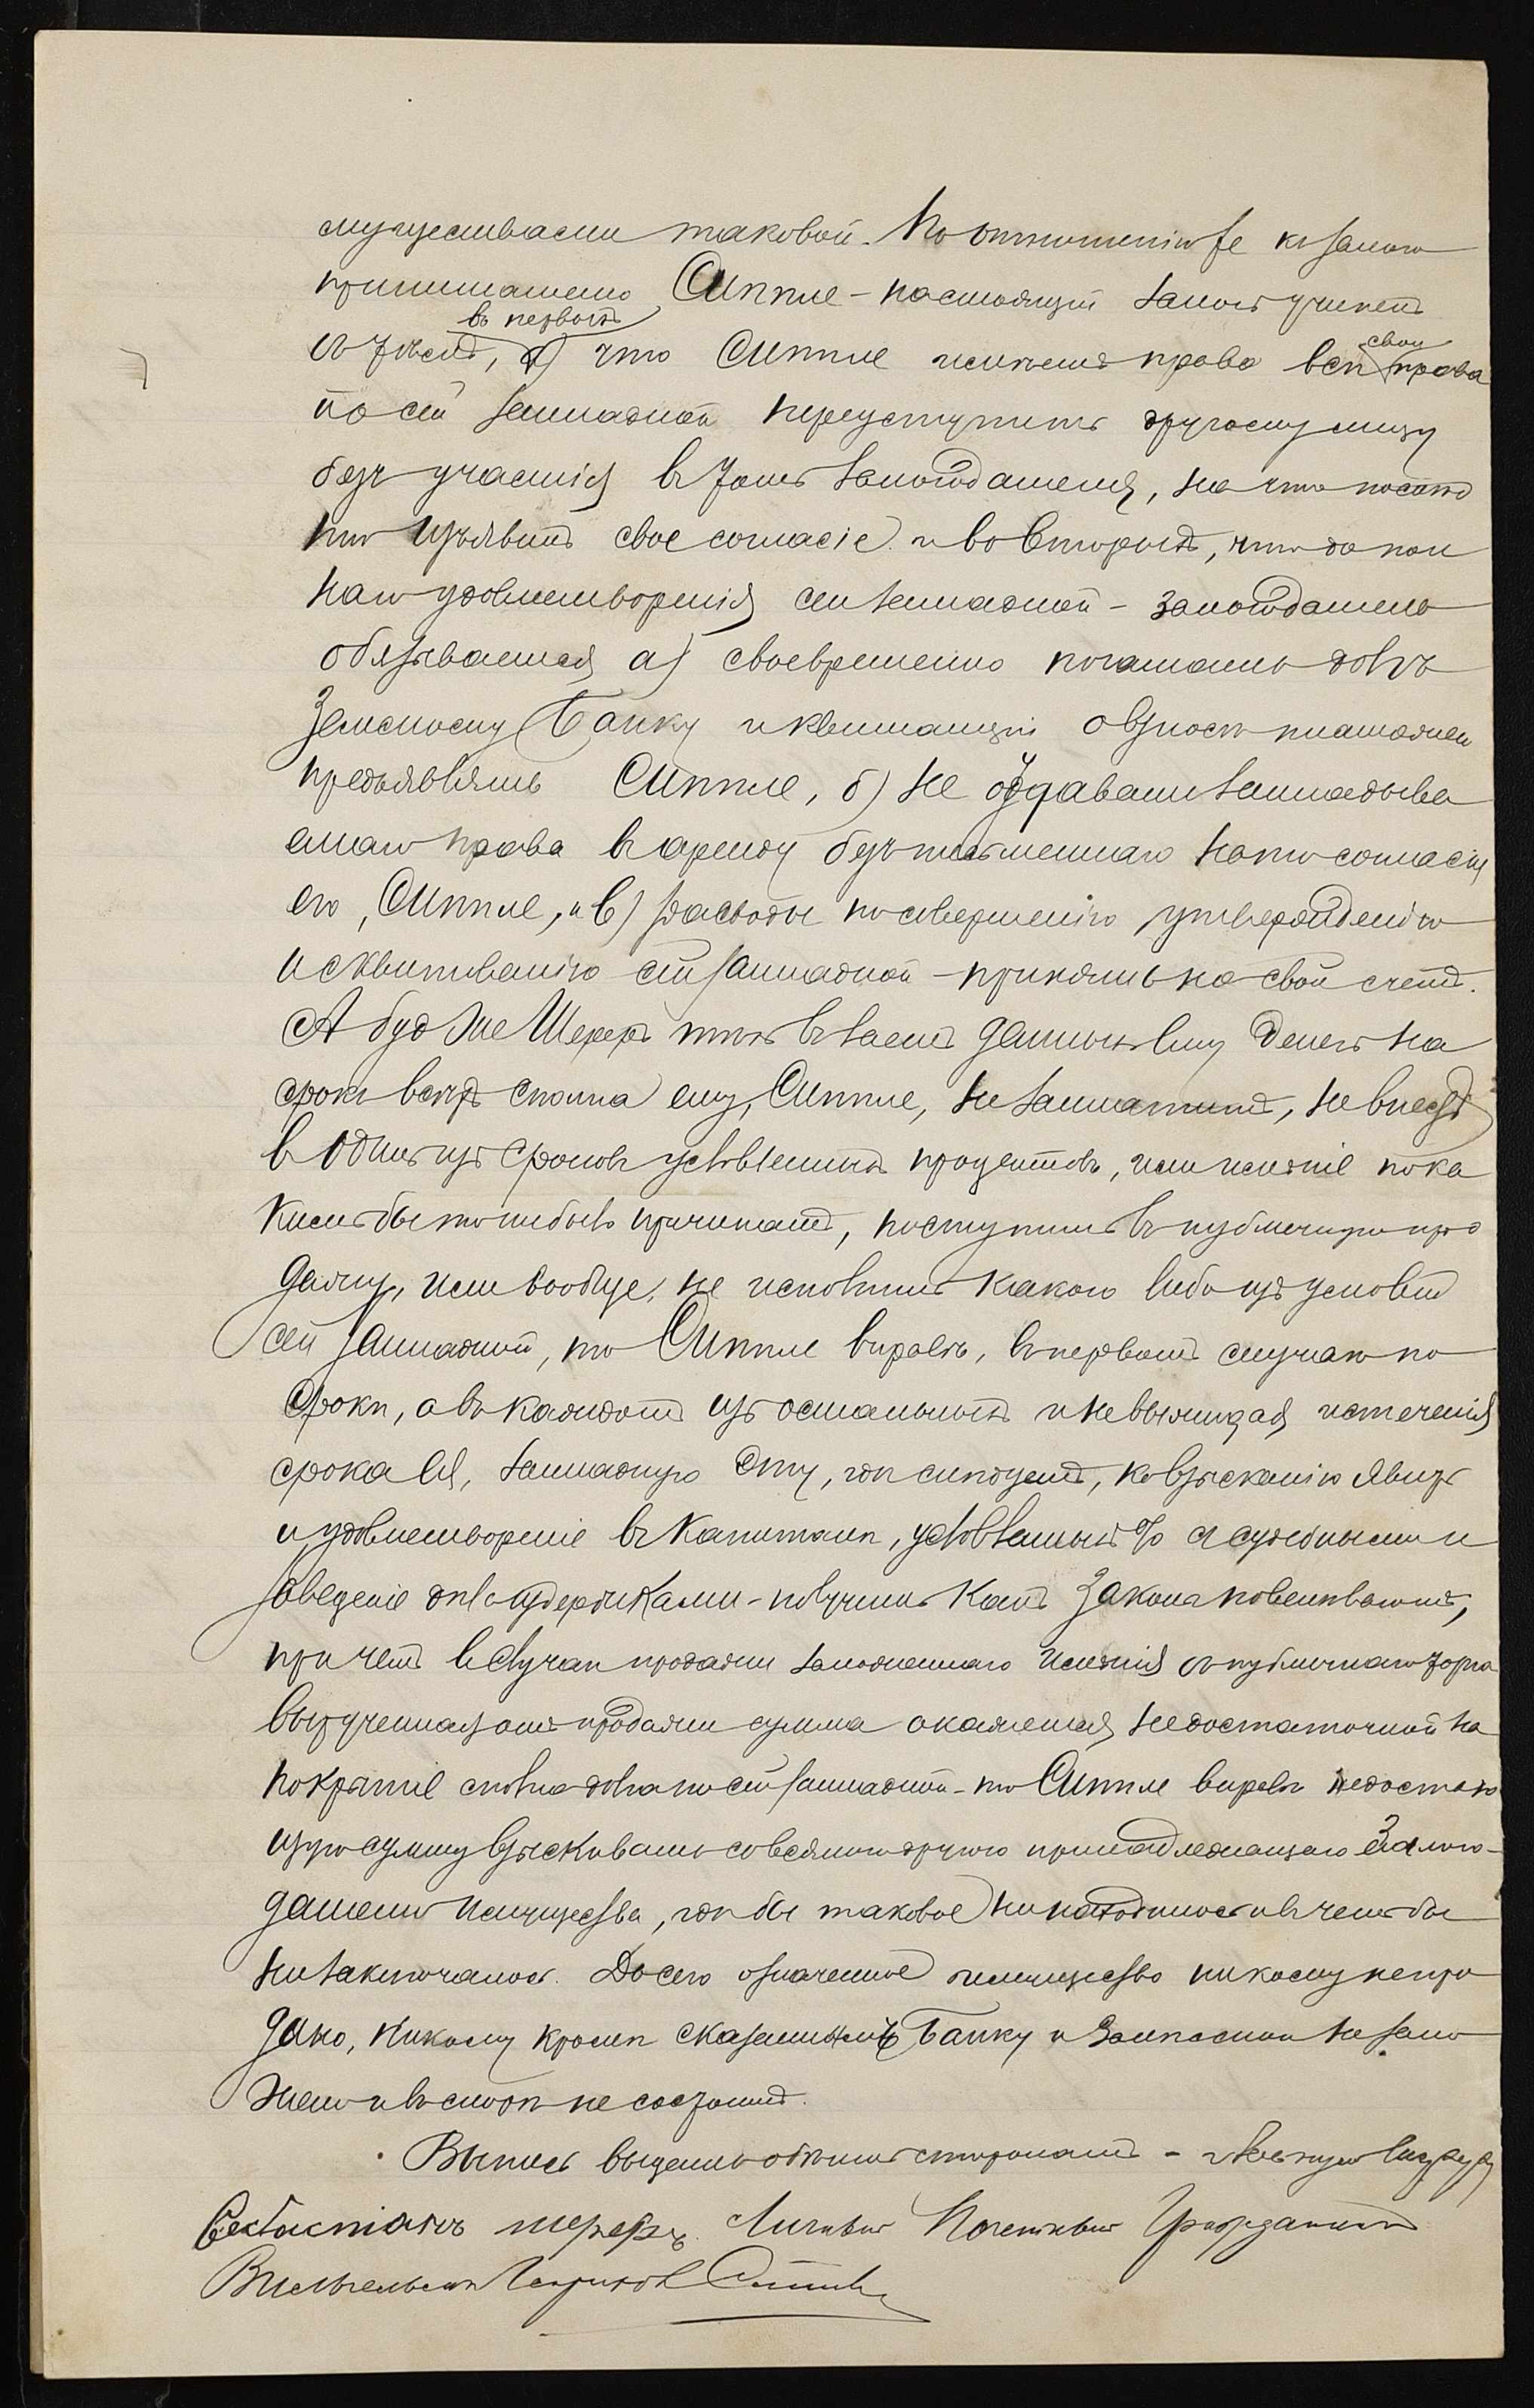 муществами таковой. По отношенію же къ залого
принимателю Сиппле - настоящій залогъ учиненъ
въ первыхъ
съ тѣмъ, что Сиппле имѣетъ право всѣ свои права
по сей закладной переуступить другому лицу
безъ участія въ томъ залогодателя, на что послѣд
ній изъявилъ свое согласіе и во вторыхъ, что до пол
наго удовлетворенія сей закладной - залогодатель
обязывается а) своевременно погашать долгъ
Земскому Банку и квитанціи о взносѣ платежей
предъявлять Сиппле, б) не отдавать закладыва
емаго права въ аренду безъ письменнаго на то согласія
его, Сиппле, и в) расходы по совершенію утвержденію
и сквитыванію сей закладной - принять на свой счетъ.
А буде же Шереръ этихъ въ заемъ данныхъ ему денегъ на
срокъ всѣхъ сполна ему, Сиппле, не заплатитъ, не внесетъ
въ одинъ изъ сроковъ условленныхъ процентовъ, или имѣніе по ка
кимъ бы то ни было причинамъ, поступитъ въ публичную про
дажу, или вообще, не исполнитъ какого либо изъ условій
сей закладной, то Сиппле вправѣ, въ первомъ случаѣ по
срокѣ, а въ каждомъ изъ остальныхъ и не выжидая истеченія
срока ея, закладную эту, гдѣ слѣдуетъ, ко взысканію явить
и удовлетвореніе въ капиталѣ, условленныхъ % и судебными и
за веденіе дѣла издержками - получить какъ законъ повелѣваетъ,
при чемъ въ случаѣ продажи заложеннаго имѣнія съ публичнаго торга
вырученная отъ продажи сумма окажется недостаточной на
покрытіе сполна долга по сей закладной - то Сиппле вправѣ недостаю
щую сумму взыскивать со всякаго другого принадлежащаго Залого-
дателю имущества, гдѣ бы таковое ни находилось и въ чемъ бы
ни заключалось. До сего означенное имущество никому не про
дано, никому кромѣ сказанныхъ Банку и не зало
жено и въ спорѣ не состоитъ.
Выпись выдать обѣимъ сторонамъ -
Себастіанъ Шереръ. Личный Почетный Гражданинъ
Вильгельмъ Сиппле